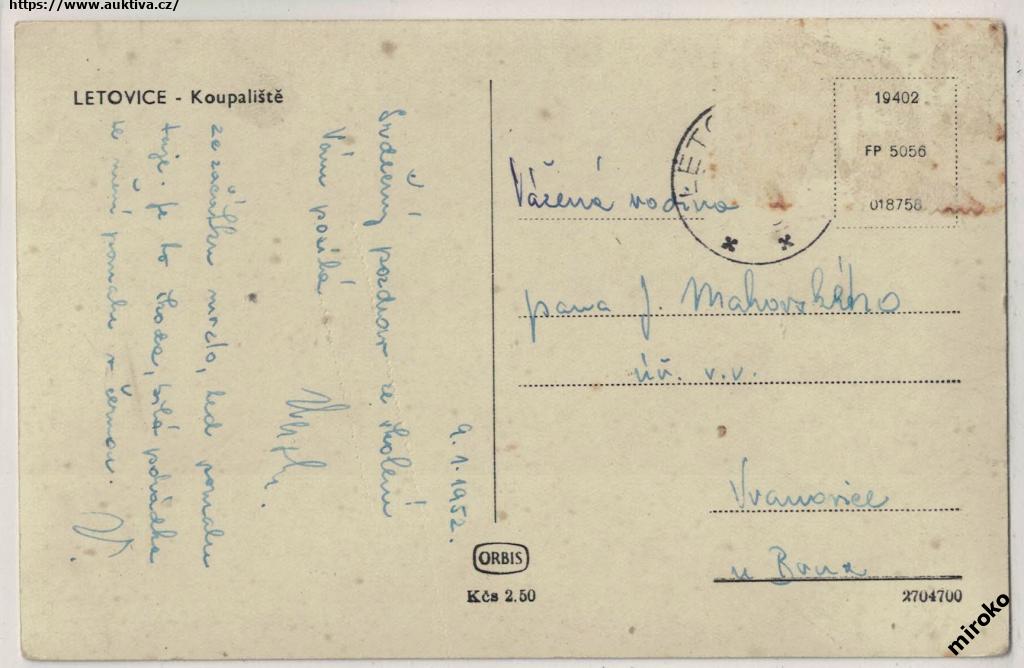 https://www.auktiva.cz/
LETOVICE - Koupaliště
9. 1. 1952.
Srdečný pozdrav ze školení
Vám posílá
ze začátku mrzlo, teď pomalu
taje. Je to škoda, bílá pohádka
se mění pomalu v černou.
V.
LETO
19402
FP 5056
018756
Vážená rodina
pana J. Makovského
úř. v.v.
Vranovice
u Brna
ORBIS
Kčs 2.50
2704700
miroko